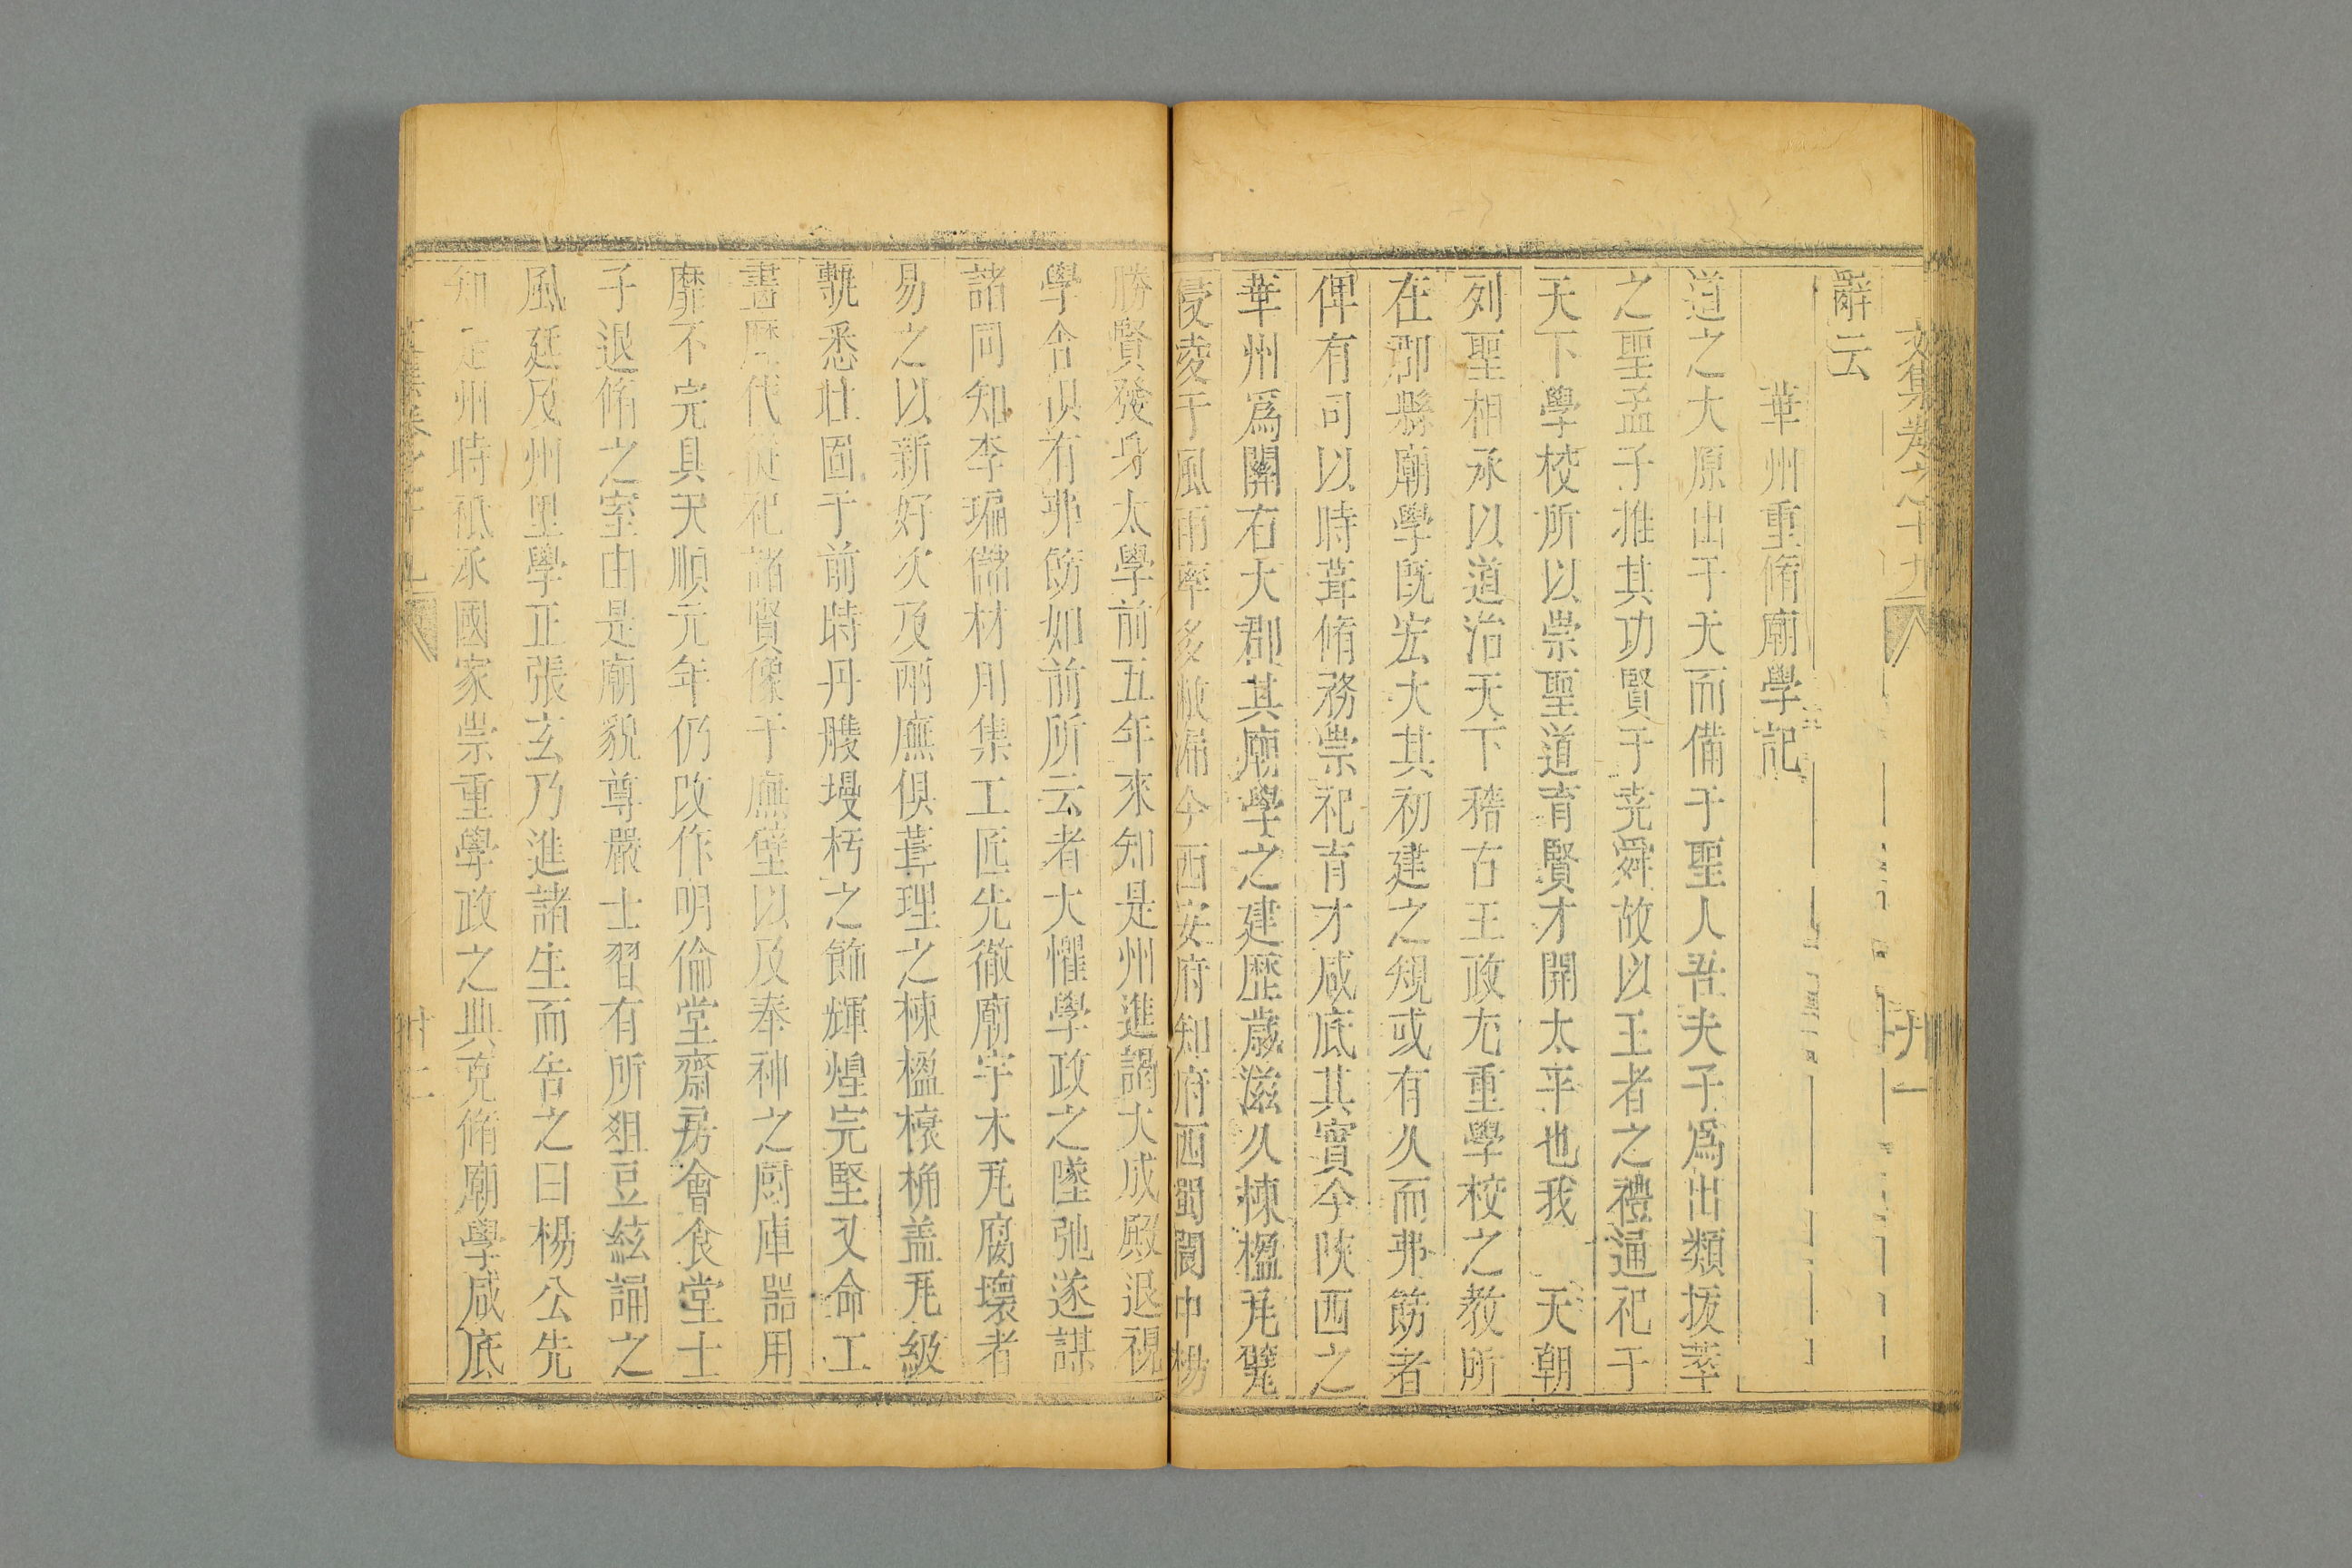 文集卷之十九
廿一
辭云
華州重脩廟學記
道之大原出于天而備于聖人吾夫子爲出類拔萃
之聖孟子推其功賢于堯舜故以王者之禮通祀于
天下學校所以崇聖道育賢才開太平也我 天朝
列聖相承以道治天下稽古王政尤重學校之教所
在郡縣廟學旣宏大其初建之規或有久而弗飭者
俾有司以時葺脩務崇祀育才咸底其實今陝西之
華州爲關右大郡其廟學之建歷歲滋久棟楹瓦甓
侵凌于風雨率多敝漏今西安府知府西蜀閬中楊
勝賢發身太學前五年來知是州進謁大成殿退視
學舍俱有弗飭如前所云者大懼學政之墜弛遂謀
諸同知李瑞儲材用集工匠先徹廟宇木瓦腐壞者
易之以新好次及兩廡俱葺理之棟楹榱桷盖瓦級
甎悉壯固于前時丹雘墁杇之飾輝煌完堅又命工
畫歷代從祀諸賢像于廡壁以及奉神之厨庫器用
靡不完具天順元年仍改作明倫堂齋房會食堂士
子退脩之室由是廟貌尊嚴士習有所俎豆絃誦之
風延及州里學正張玄乃進諸生而告之曰楊公先
知是州時祗承國家崇重學政之典克脩廟學咸底
文集卷之十九
廿二